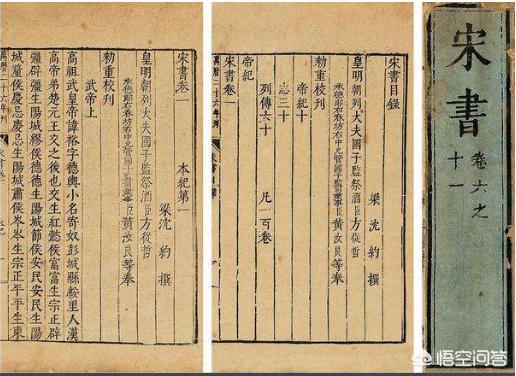 宋書
卷六之
十一
宋書目錄
梁沈約撰
皇明朝列大夫國子監祭酒臣方從哲
承德郎右春坊右中允管國子監司業事臣黃汝良等奉
勅重校刊
帝紀十
志三十
列傳六十
凡一百卷
帝紀
宋書卷一
萬曆二十六年刊
宋書卷一
本紀第一
梁沈約撰
皇明朝列大夫國子監祭酒臣方從哲
承德郎右春坊右中允管國子監司業事臣黃汝良等奉
勅重校刊
武帝上
高祖武皇帝諱裕字德輿小名寄奴彭城縣綏里人漢
高帝弟楚元王交之後也交生紅懿侯富富生宗正辟
彊辟彊生陽城繆侯德德生陽城節侯安民安民生陽
城釐侯慶忌慶忌生陽城肅侯岑岑生宗正平平生東
萬曆二十六年刊
宋書卷一
悟空问答